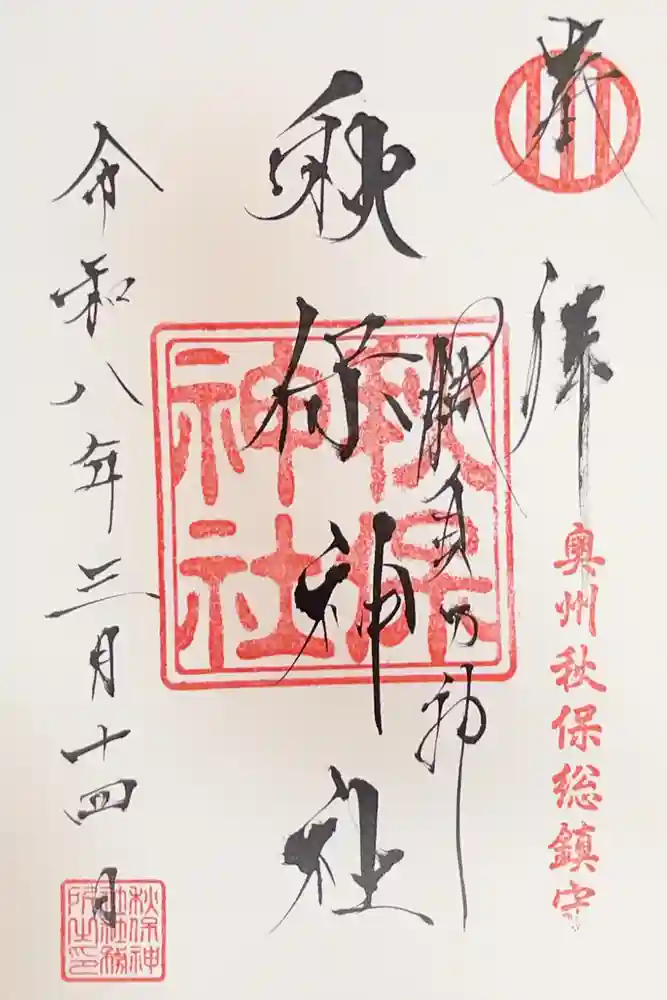 奉拝
奥州秋保総鎮守
勝負の神
秋保神社
秋保
神社
令和八年三月十四日
秋保神
社社務
所之印